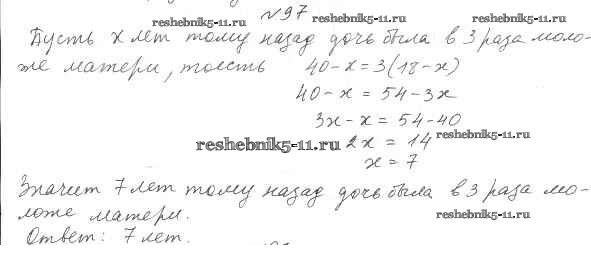 №97
reshebnik5-11.ru reshebnik5-11.ru reshebnik5-11.ru
Пусть x лет тому назад дочь была в 3 раза моло-
же матери, тоесть 40-x=3(18-x)
40-x = 54-3x
3x-x = 54-40
reshebnik5-11.ru 2x = 14 reshebnik5-11.ru
x = 7
Значит 7 лет тому назад дочь была в 3 раза мо-
ложе матери.
reshebnik5-11.ru
Ответ: 7 лет.